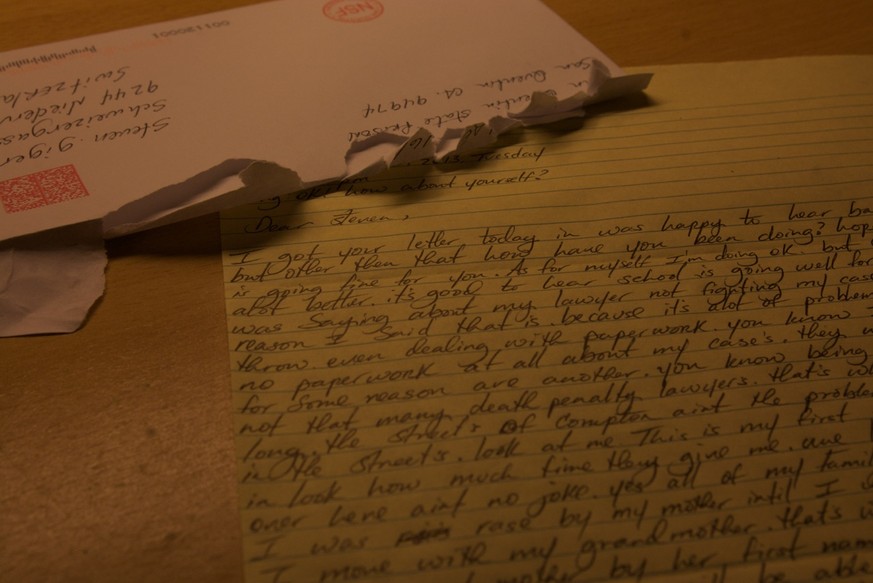 NSF
001120001
Steven giger
Schweizergass
9244 Niederu
Switzerla
Quentin State Prison
San Quentin CA. 94974
Tuesday
how about yourself?
Dear Steven,
I got your letter today in was happy to hear ba
but other then that how have you been doing? hop
is going fine for you. As for myself I'm doing ok. but
alot better. it's good to hear school is going well for
was saying about my lawyer not fighting my case
reason I said that is because it's alot of problem
throw even dealing with paperwork. you know
no paperwork at all about my case's. they w
for some reason are another. you know being
not that many death penalty lawyers. that's wh
long. the street's of Compton aint the proble
in the street's. look at me This is my first
in look how much time they give me. and
over here aint no joke. yes all of my famil
I was rase by my mother intil I
I move with my grandmother. that's
mother by her first nam
be able